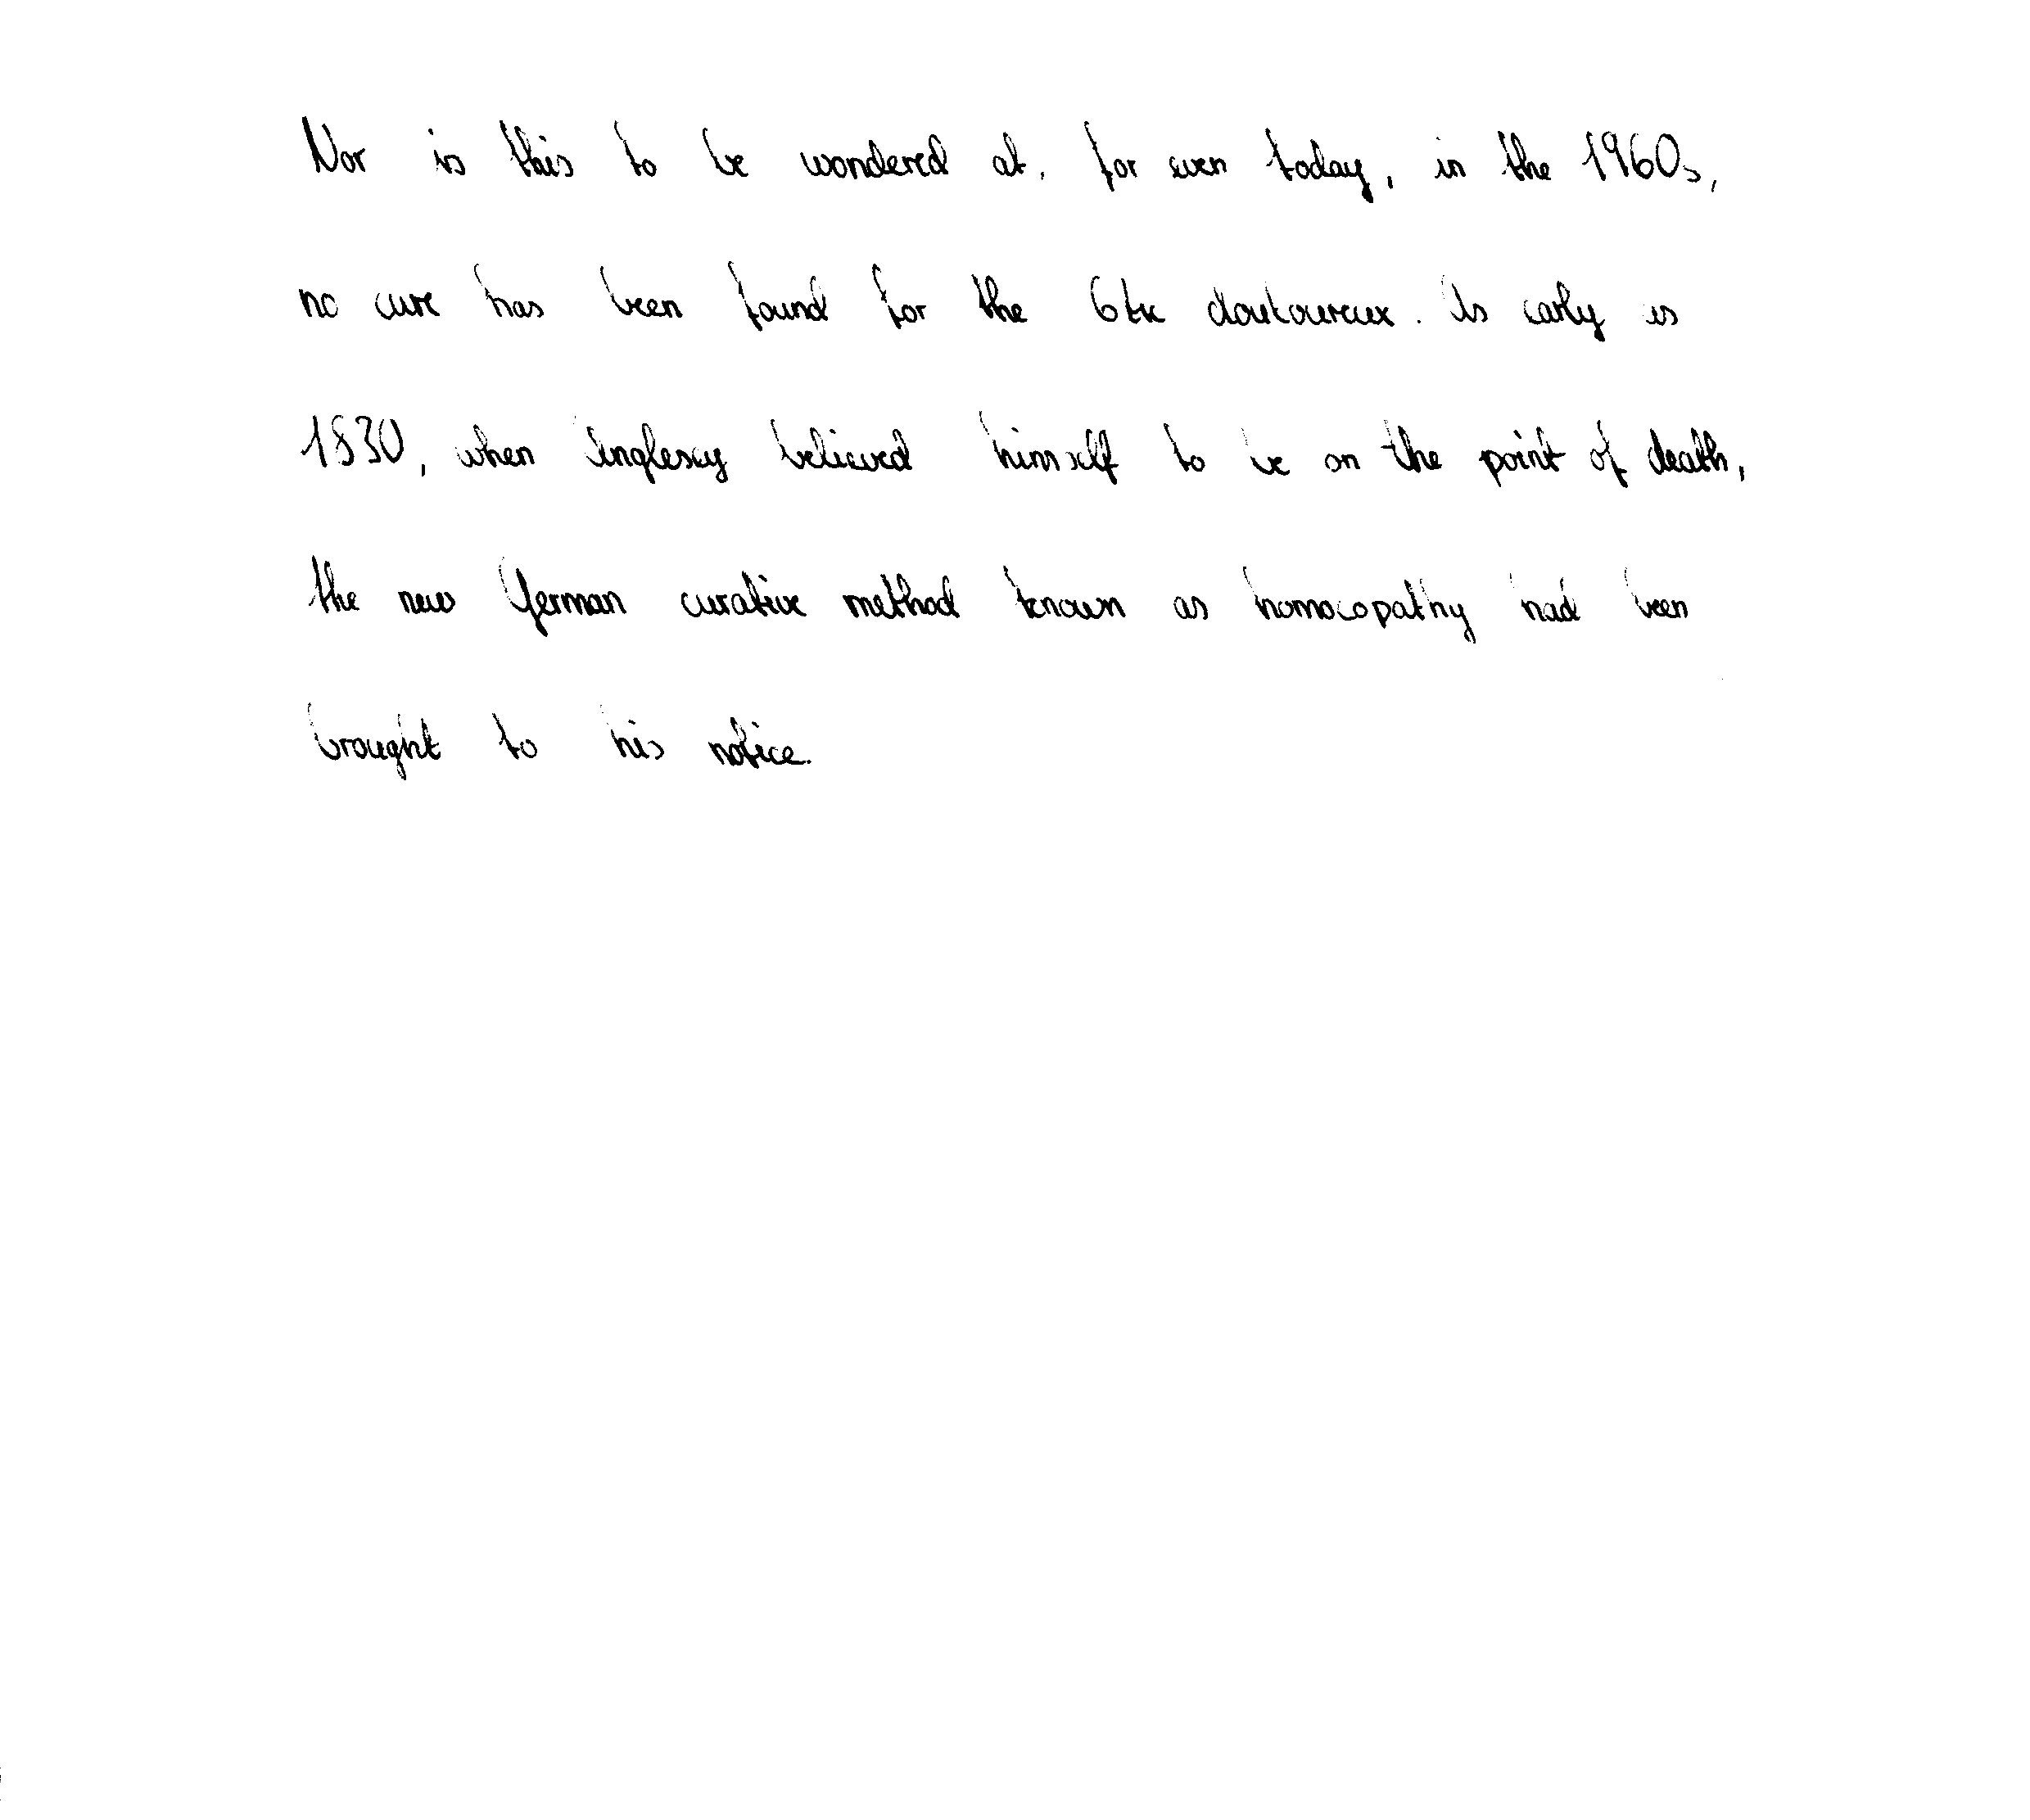 Nor is this to be wondered at, for even today, in the 1960s,
no cure has been found for the douloureux. As early as
1830, when Anglesey believed himself to be on the point of death,
the new German curative method known as homoeopathy had been
brought to his notice.